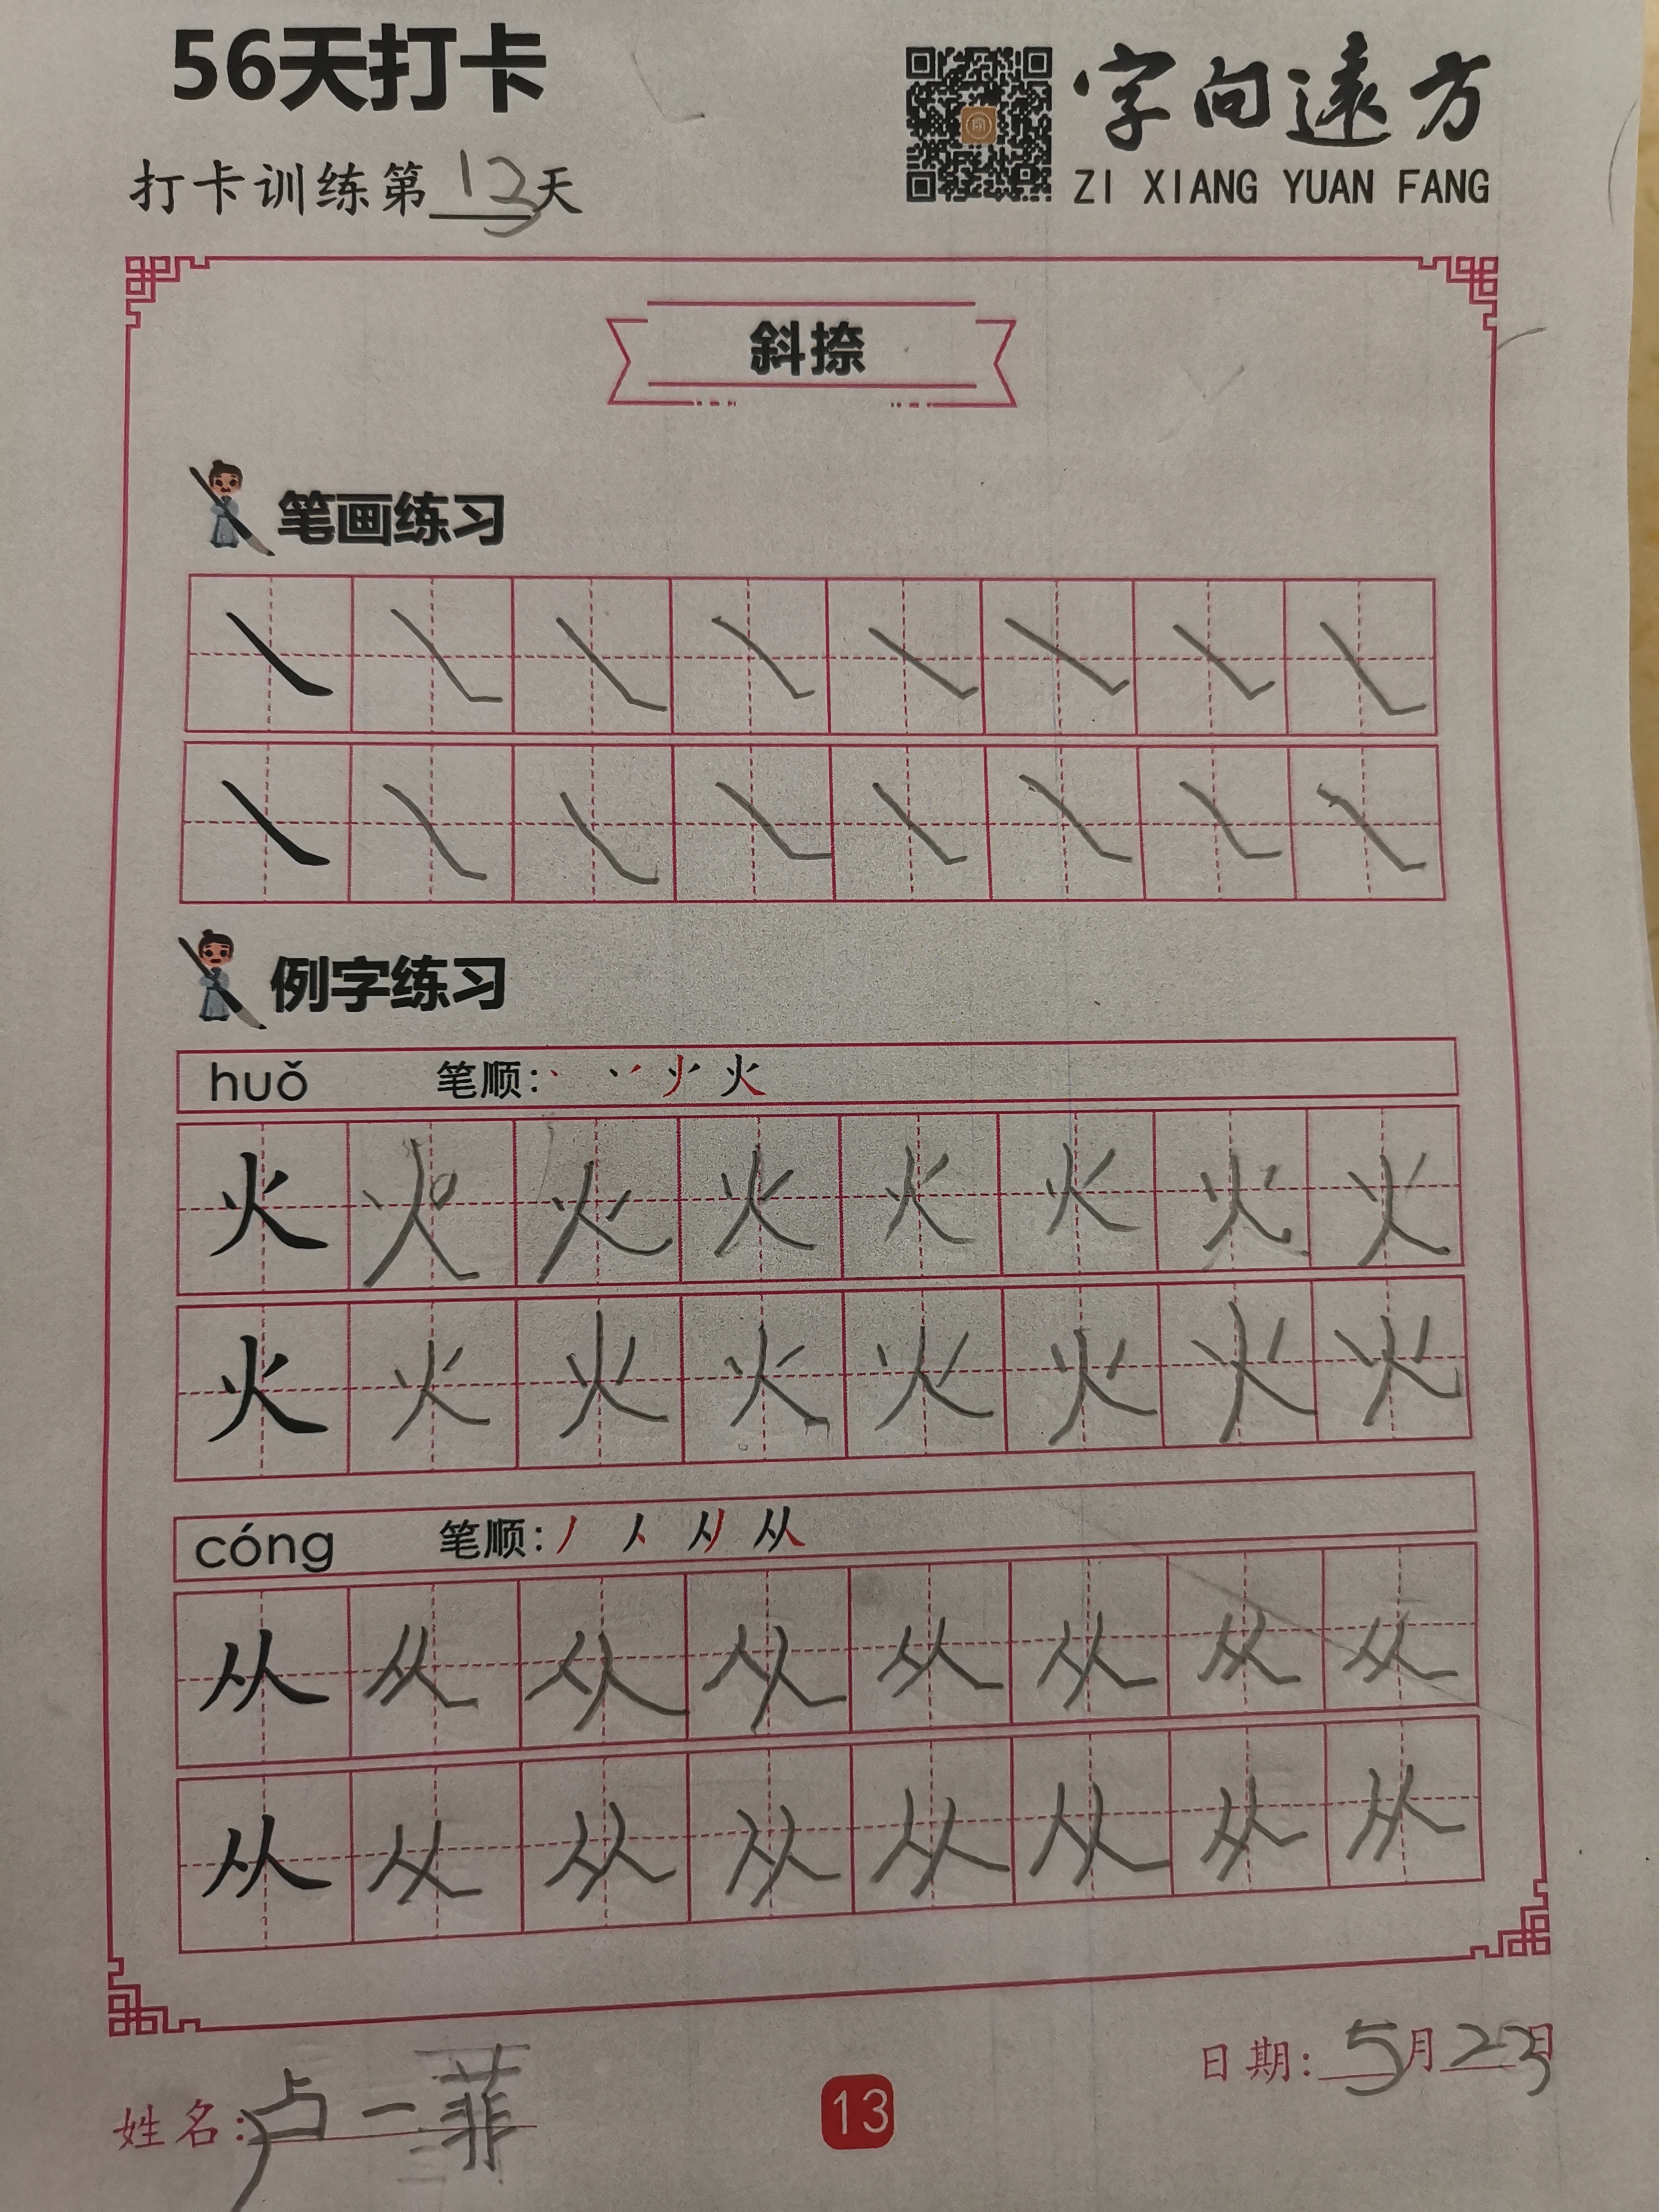 56天打卡
字向遠方
ZI XIANG YUAN FANG
打卡训练第13天
斜捺
笔画练习
例字练习
huǒ 笔顺: 火
火 火 火 火 火 火 火 火
火 火 火 火 火 火 火 火
cóng 笔顺: 从
从 从 从 从 从 从 从 从
从 从 从 从 从 从 从 从
日期: 5月23日
姓名: 卢一菲
13